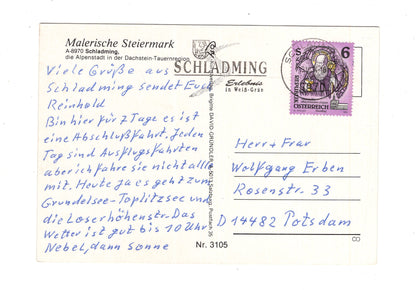 Malerische Steiermark
A-8970 Schladming,
die Alpenstadt in der Dachstein-Tauernregion
SCHLADMING
Erlebnis
in Weiß-Grün
S 6
ÖSTERREICH
Viele Grüße aus
Schladming sendet Euch
Reinhold
Bin hier für 7 Tage es ist
eine Abschlußfahrt. Jeden
Tag sind Ausflugsfahrten
aber ich fahre sie nicht alle
mit. Heute ja es geht zum
Grundelsee-Toplitzsee und
die Loserhöhenstr. Das
Wetter ist gut bis 10 Uhr
Nebel, dann Sonne
Herr + Frau
Wolfgang Erben
Rosenstr. 33
D 14482 Potsdam
Nr. 3105